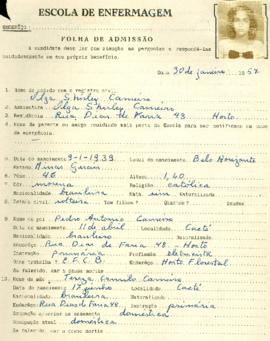 ESCOLA DE ENFERMAGEM
ENDEREÇO:
FOLHA DE ADMISSÃO
A candidata deve ler com atenção as perguntas e respondê-las
cuidadosamente em seu próprio benefício.
Data 30 de janeiro
1 - Nome de acordo com o registro civil
Ilza Shirley Carneiro
2 - Assinatura Ilza Shirley Carneiro
3 - Residência Rua Dias de Faria 48. Horto.
4 - Nome do parente ou amigo residindo mais perto da Escola para ser notificado em caso
de emergência.
6 - Data do nascimento 9-1-1939 Local do nascimento Belo Horizonte
Estado Minas Gerais
7 - Peso 46 Altura 1,40
Cor morena Religião católica
Nacionalidade brasileira Naturalizada
8 - Estado civil solteira Tem filhos? Quantos? Idades
9 - Nome do pai Pedro Antonio Carneiro
Data do nascimento 11 de abril Local Caeté
Nacionalidade brasileiro Naturalizado
Endereço Rua Dias de Faria 48. Horto
Instrução primária Profissão
Onde trabalha? E.F.C.B. Endereço Horto Florestal
Se falecido, dar a causa mortis
10 - Nome da mãe Camilo Carneiro
Data do nascimento 17 junho Local Caeté
Nacionalidade brasileira Naturalizada
Endereço Rua Dias de Faria 48. Instrução primária
Ocupação anterior ao casamento doméstica
Ocupação atual doméstica
Se falecida, dar a causa mortis